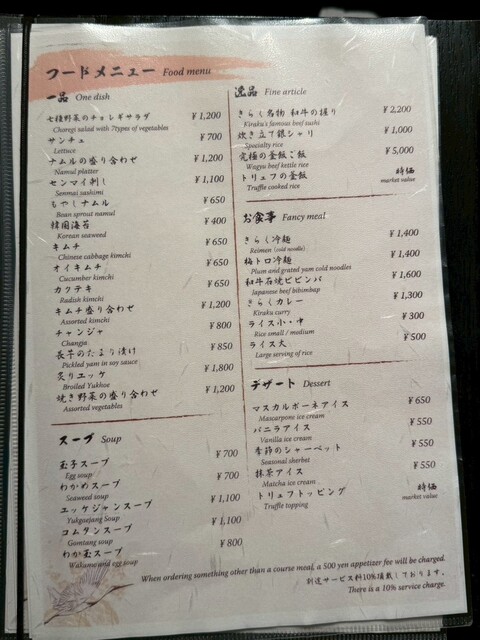 フードメニュー Food menu
一品 One dish
七種野菜のチョレギサラダ ¥1,200
Choregi salad with 7types of vegetables
サンチュ ¥700
Lettuce
ナムルの盛り合わせ ¥1,200
Namul platter
センマイ刺し ¥1,100
Senmai sashimi
もやしナムル ¥650
Bean sprout namul
韓国海苔 ¥400
Korean seaweed
キムチ ¥650
Chinese cabbage kimchi
オイキムチ ¥650
Cucumber kimchi
カクテキ ¥650
Radish kimchi
キムチ盛り合わせ ¥1,200
Assorted kimchi
チャンジャ ¥800
Changja
長芋のたまり漬け ¥850
Pickled yam in soy sauce
炙りユッケ ¥1,800
Broiled Yukhoe
焼き野菜の盛り合わせ ¥1,200
Assorted vegetables
スープ Soup
玉子スープ ¥700
Egg soup
わかめスープ ¥700
Seaweed soup
ユッケジャンスープ ¥1,100
Yukgaejang Soup
コムタンスープ ¥1,100
Gomtang soup
わか玉スープ ¥800
Wakame and egg soup
逸品 Fine article
きらく名物 和牛の握り ¥2,200
Kiraku's famous beef sushi
炊き立て銀シャリ ¥1,000
Specialty rice
究極の釜飯ご飯 ¥5,000
Wagyu beef kettle rice
トリュフの釜飯 時価
Truffle cooked rice market value
お食事 Fancy meal
きらく冷麺 ¥1,400
Reimen (cold noodle)
梅トロ冷麺 ¥1,400
Plum and grated yam cold noodles
和牛石焼ビビンバ ¥1,600
Japanese beef bibimbap
きらくカレー ¥1,300
Kiraku curry
ライス小・中 ¥300
Rice small / medium
ライス大 ¥500
Large serving of rice
デザート Dessert
マスカルポーネアイス ¥650
Mascarpone ice cream
バニラアイス ¥550
Vanilla ice cream
季節のシャーベット ¥550
Seasonal sherbet
抹茶アイス ¥550
Matcha ice cream
トリュフトッピング 時価
Truffle topping market value
When ordering something other than a course meal, a 500 yen appetizer fee will be charged.
別途サービス料10%頂戴しております。
There is a 10% service charge.